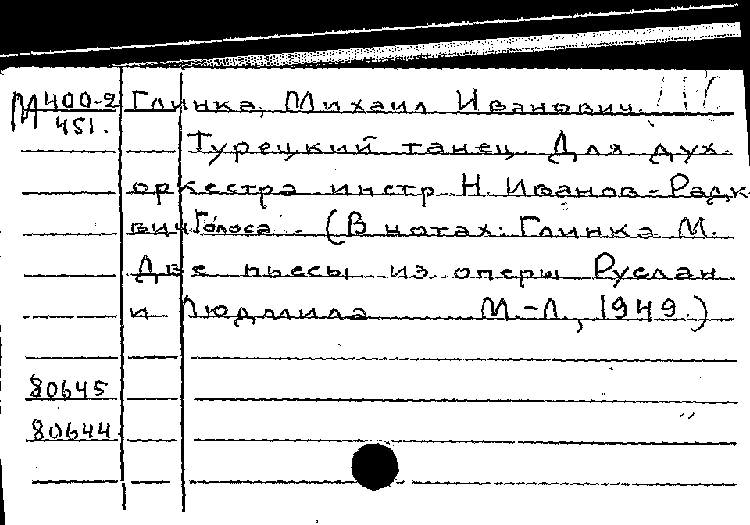 М 400-2 Глинка, Михаил Иванович.
451.
Турецкий танец. Для дух.
оркестра инстр Н. Иванов-Радк
вич Голоса. (В нотах: Глинка М.
Две пьесы из оперы Руслан
и Людмила М-Л, 1949.)
80645
80644